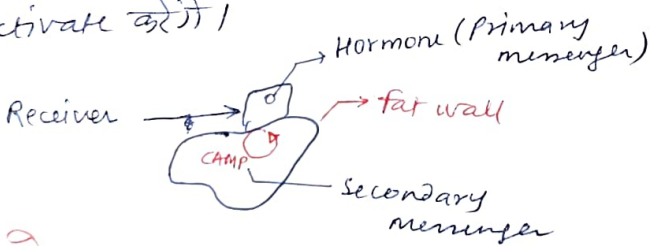 ctivate करेगा।
Hormone (Primary
messenger)
Receiver
fat wall
CAMP
Secondary
messenger